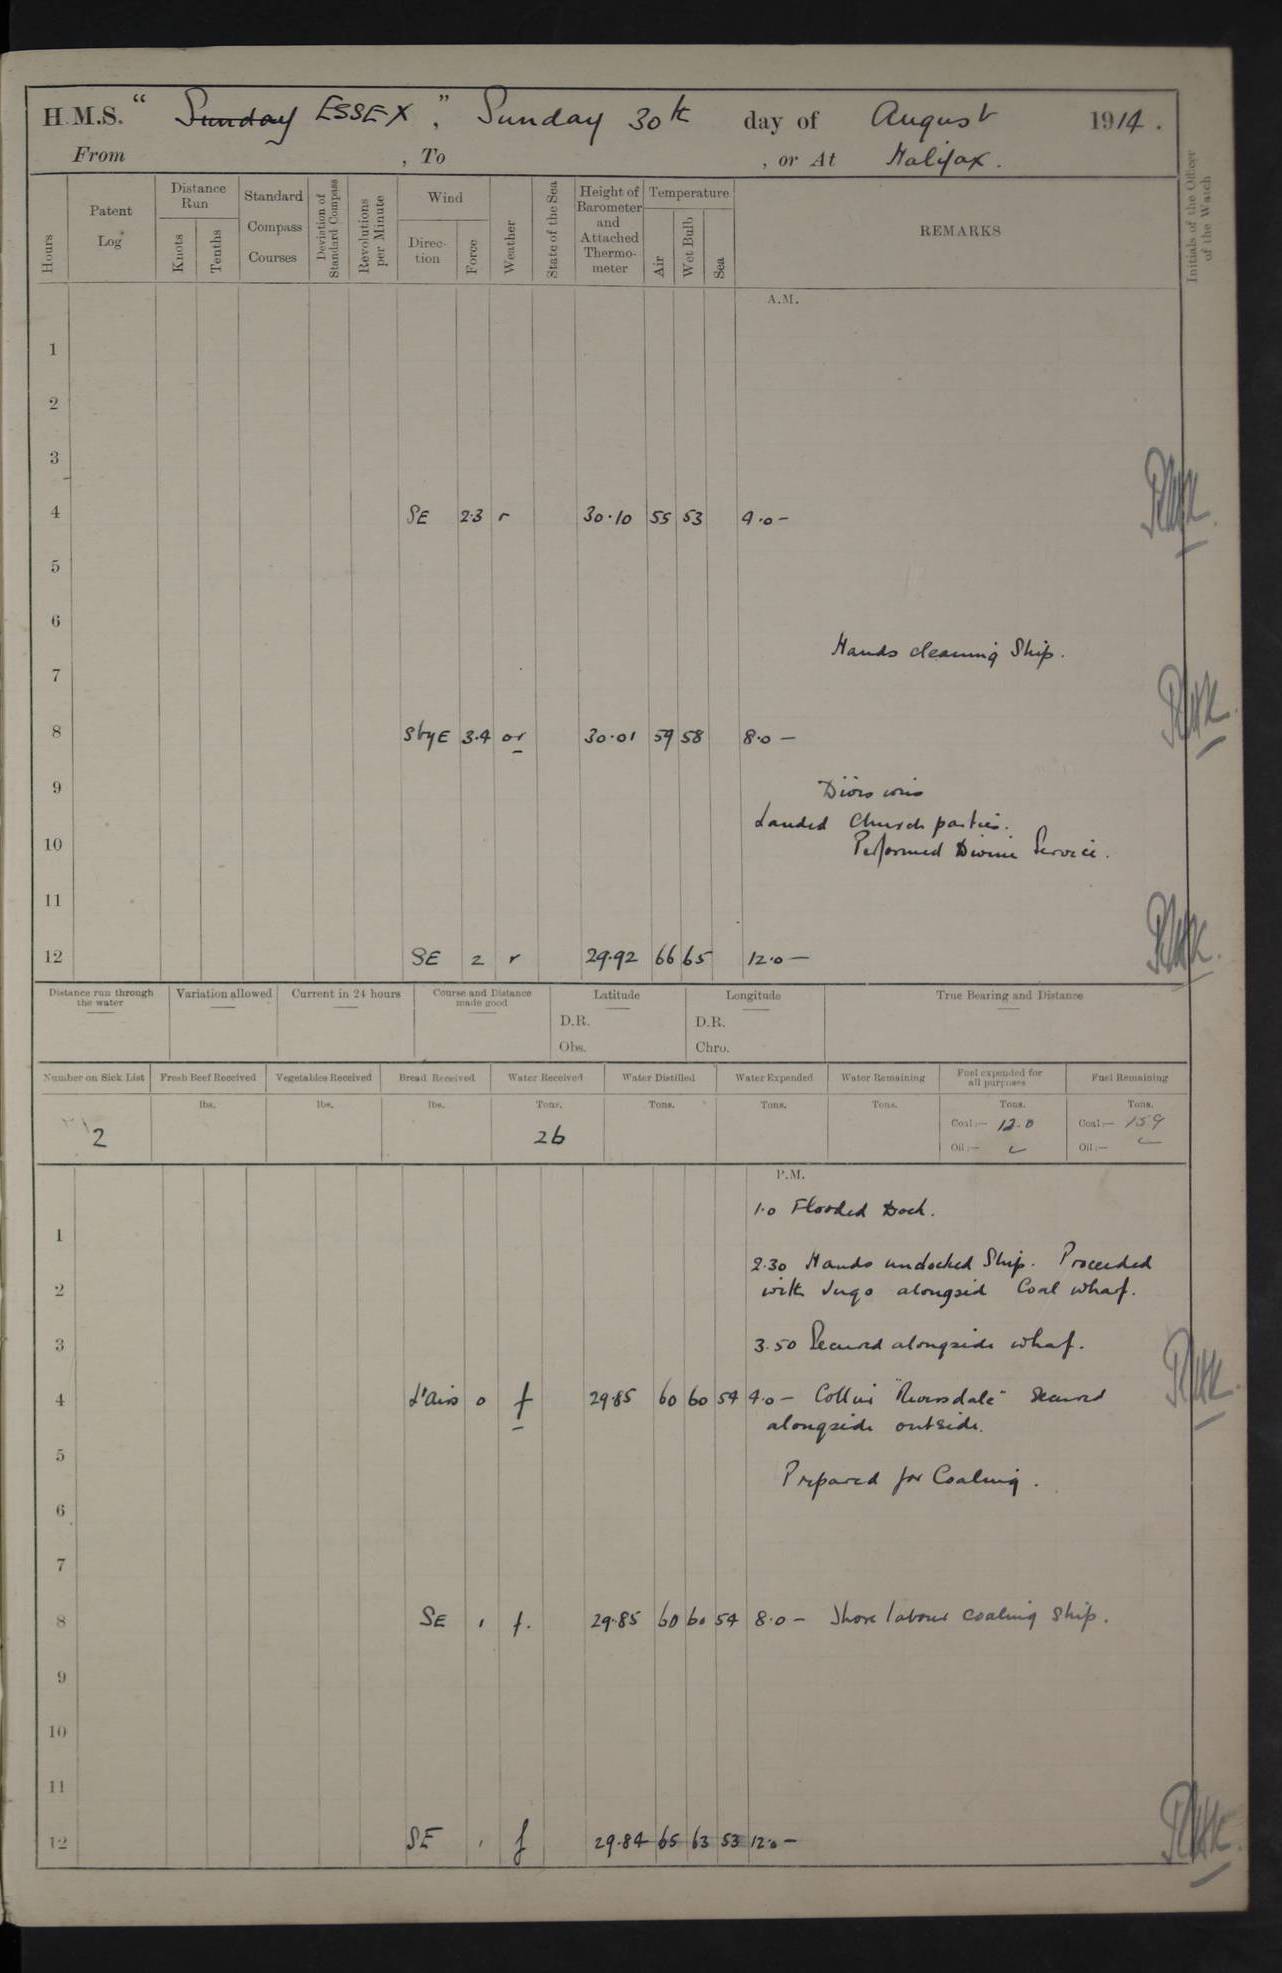 H.M.S. " Sunday ESSEX ", Sunday 30th day of August 1914.
From , To , or At Halifax.
Hours
Patent Log
Distance Run
Knots
Tenths
Standard Compass Courses
Deviation of Standard Compass
Revolutions per Minute
Wind
Direc-tion
Force
Weather
State of the Sea
Height of Barometer and Attached Thermo-meter
Temperature
Air
Wet Bulb
Sea
REMARKS
Initials of the Officer of the Watch
A.M.
1
2
3
4 SE 2.3 r 30.10 55 53 4.0 –
5
6
Hands cleaning Ship.
7
8 SbyE 3.4 or 30.01 59 58 8.0 –
9 Divisions
Landed Church parties.
10 Performed Divine Service.
11
12 SE 2 r 29.92 66 65 12.0 –
Distance run through the water
Variation allowed
Current in 24 hours
Course and Distance made good
Latitude
D.R.
Obs.
Longitude
D.R.
Chro.
True Bearing and Distance
Number on Sick List
2
Fresh Beef Received
lbs.
Vegetables Received
lbs.
Bread Received
lbs.
Water Received
Tons.
26
Water Distilled
Tons.
Water Expended
Tons.
Water Remaining
Tons.
Fuel expended for all purposes
Tons.
Coal:– 12.0
Oil:–
Fuel Remaining
Tons.
Coal:– 159
Oil:–
P.M.
1.0 Flooded Dock.
1
2.30 Hands undocked Ship. Proceeded
2 with tugs alongside Coal wharf.
3 3.50 Secured alongside wharf.
4 L'airs 0 f 29.85 60 60 54 4.0 – Collier "Riversdale" secured
alongside outside.
5
Prepared for Coaling.
6
7
8 SE 1 f. 29.85 60 60 54 8.0 – Shore labour coaling ship.
9
10
11
12 SE 1 f 29.84 65 63 53 12.0 –